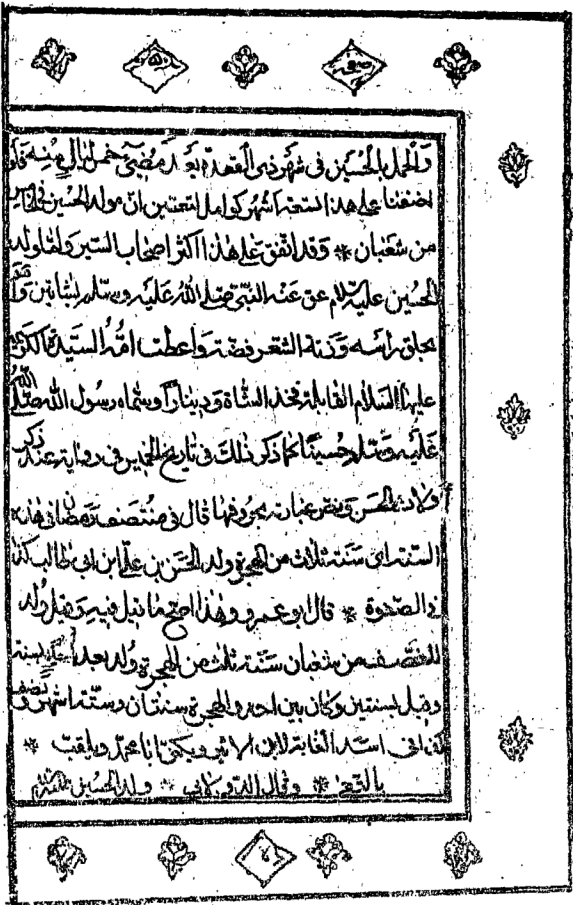 صفحه ٥٠
والحمل بالحسين فى شهر ذى القعدة بعد مضى خمس ليال منه فاذ
اضفنا على هذا التسعة اشهر كوامل لتعتبين ان مولد الحسين فى
من شعبان * وقد اتفق على هذا اكثر اصحاب السير ولما ولد
الحسين عليه السلام عق عنه النبى صلى الله عليه وسلم بشاتين
بحلق راسه وزنة الشعر فضة واعطت امه السيدة
عليها السلام القابلة فخذ الشاة ودينارا وسماه رسول الله صلى الله
عليه وسلم حسينا كما ذكر ذلك فى تاريخ الخميس فى رواية عند ذكر
ولادة الحسن ونص عبارته بحروفها قال فى منتصف رمضان فى هذه
السنة اى سنة ثلاث من الهجرة ولد الحسن بن على ابن ابى طالب كذا
فى الصفوة * قال ابو عمرو وهذا اصح ما قيل فيه وقيل ولد
للنصف من شعبان سنة ثلث من الهجرة ولد بعد احد بسنة
وقيل بسنتين وكان بين احد والهجرة سنتان وستة اشهر ونصف
كذا فى اسد الغابة لابن الاثير ويكنى ابا محمد ويلقب *
بالتقى * وقال الدولابى * ولد الحسين